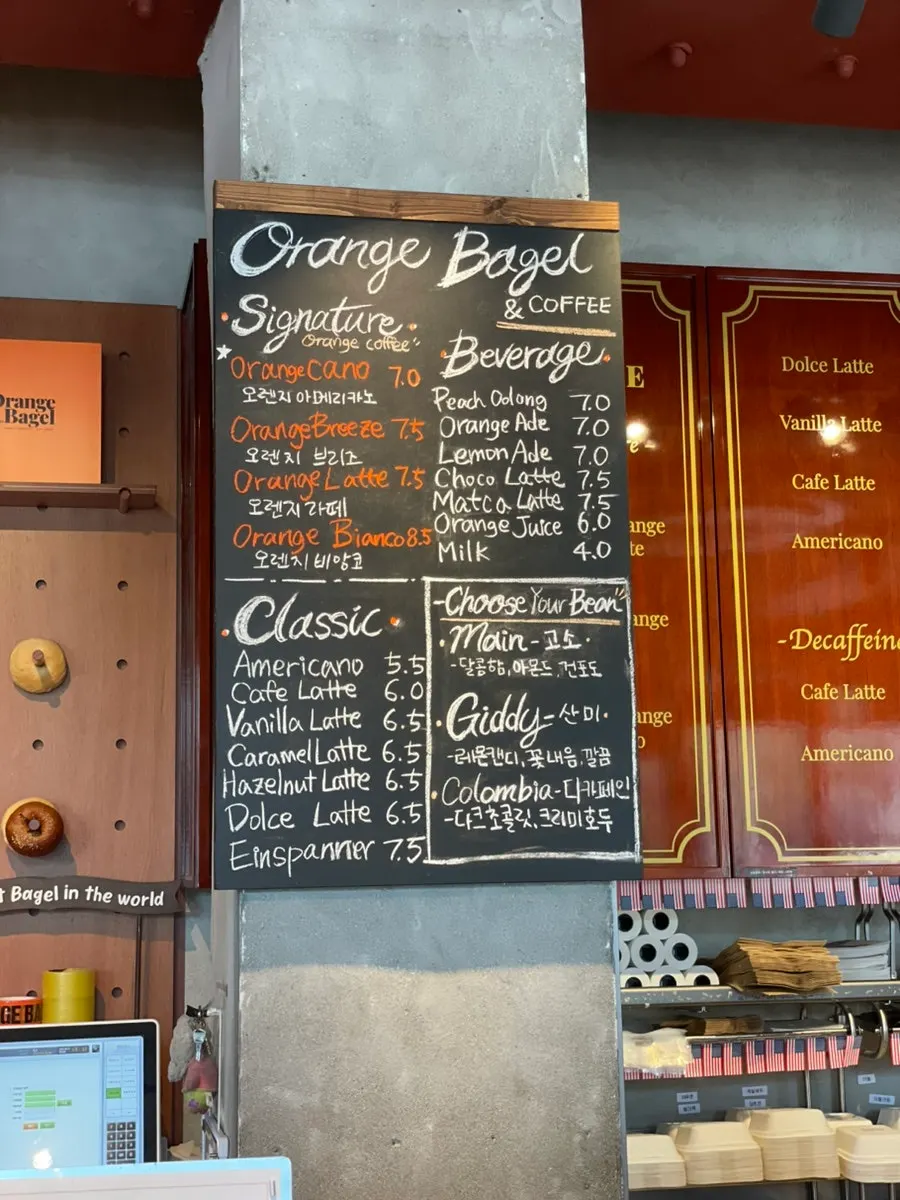 Orange Bagel
& COFFEE
Signature
Orange coffee
Orange Cano 7.0
오렌지 아메리카노
Orange Breeze 7.5
오렌지 브리즈
Orange Latte 7.5
오렌지 라떼
Orange Bianco 8.5
오렌지 비앙코
Beverage
Peach Oolong 7.0
Orange Ade 7.0
Lemon Ade 7.0
Choco Latte 7.5
Matca Latte 7.5
Orange Juice 6.0
Milk 4.0
Classic
Americano 5.5
Cafe Latte 6.0
Vanilla Latte 6.5
Caramel Latte 6.5
Hazelnut Latte 6.5
Dolce Latte 6.5
Einspanner 7.5
-Choose Your Bean"
Main - 고소
- 달콤함, 아몬드, 건포도
Giddy - 산미
- 레몬캔디, 꽃내음, 깔끔
Colombia - 디카페인
- 다크초콜릿, 크리미호두
Orange
Bagel
t Bagel in the world
Dolce Latte
Vanilla Latte
Cafe Latte
Americano
-Decaffeine
Cafe Latte
Americano